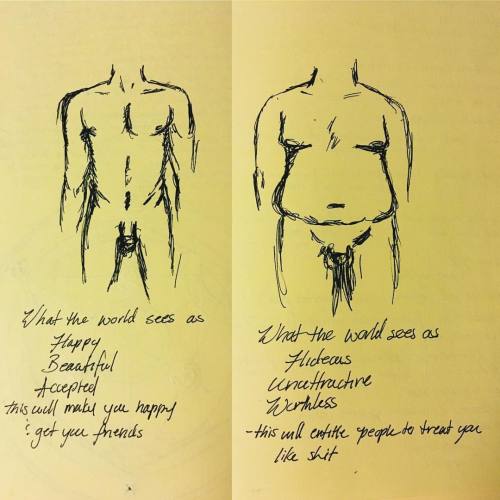 What the world sees as
Happy
Beautiful
Accepted
this will make you happy
: get you friends
What the world sees as
Hideous
Unattractive
Worthless
-this will entitle people to treat you
like shit